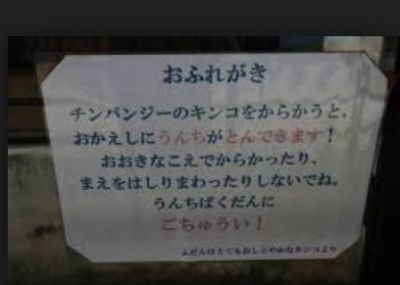 おふれがき
チンパンジーのキンコをからかうと、
おかえしにうんちがとんできます！
おおきなこえでからかったり、
まえをはしりまわったりしないでね。
うんちばくだんに
ごちゅうい！
ふだんはとてもおしとやかなキンコより